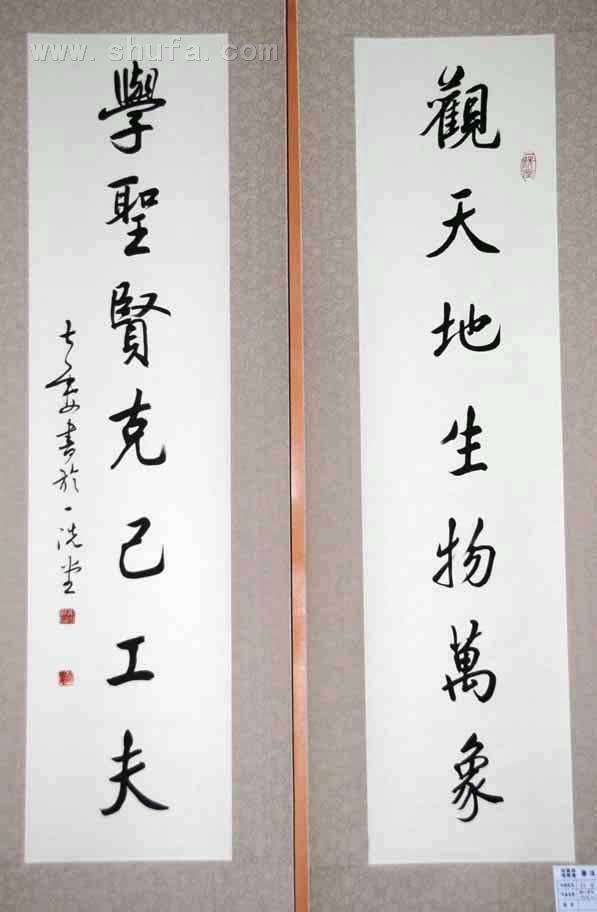 觀天地生物萬象
學聖賢克己工夫
書於一洗堂
www.shufa.com